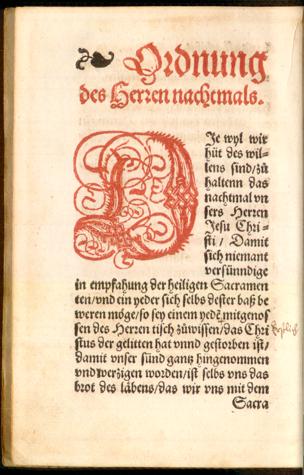 Ordnung
des Herren nachtmals.
DJe wyl wir
hüt des wil-
lens sind/zů
haltenn das
nachtmal vn
sers Herren
Jesu Chri-
sti/ Damit
sich niemant
versünndige
in empfahung der heiligen Sacramen
ten/vnd ein yeder sich selbs dester baß be
weren möge/so sey einem yedẽ mitgenos
sen des Herren tisch zůwissen/das Chri
stus der gelitten hat vnnd gestorben ist/
damit vnser sünd gantz hingenommen
vnd verzigen worden/ist selbs vns das
brot des läbens/das wir vns mit dem
Sacra